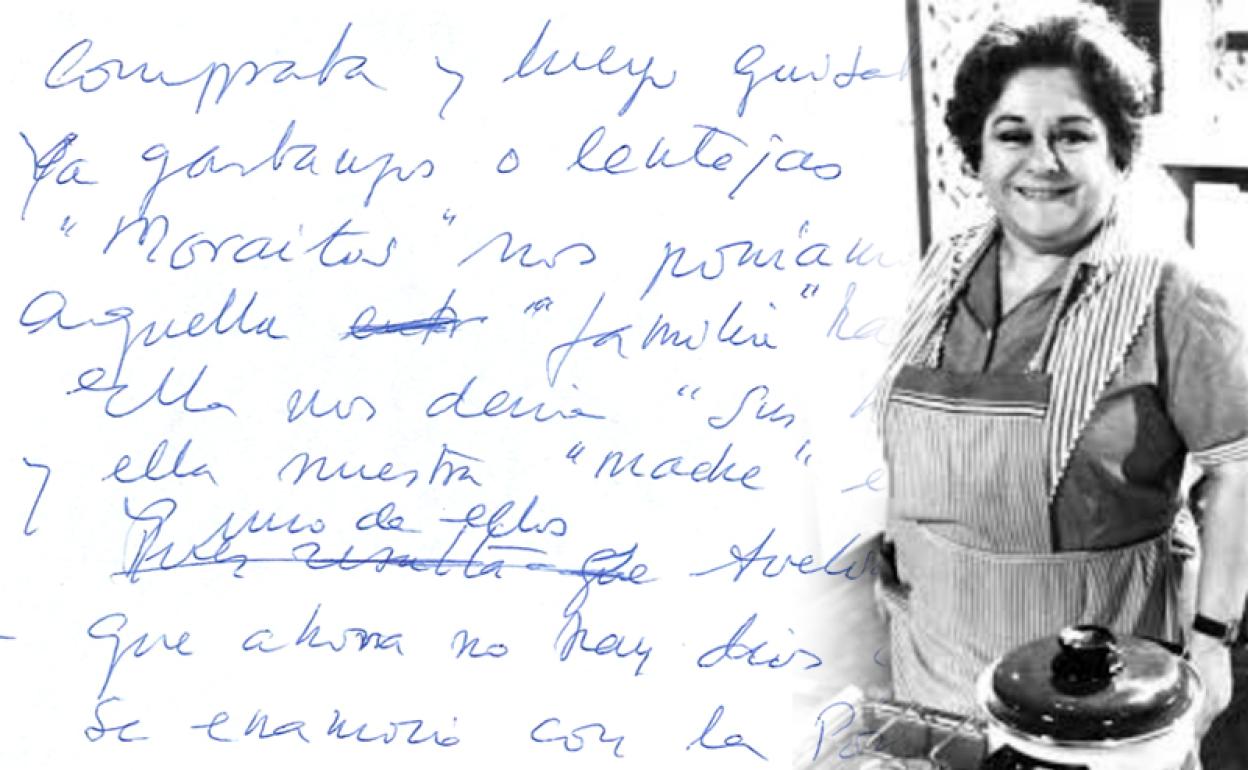 comprata y luego guisa
Ya garbanzos o lentejas
"Moraitos" nos poníam
aquella "familia" ha
ella nos decia "sus h
y ella nuestra "madre" e
y uno de ellos
Pues resulta que Aveli
que ahora no hay dios
se enamoró con la Po